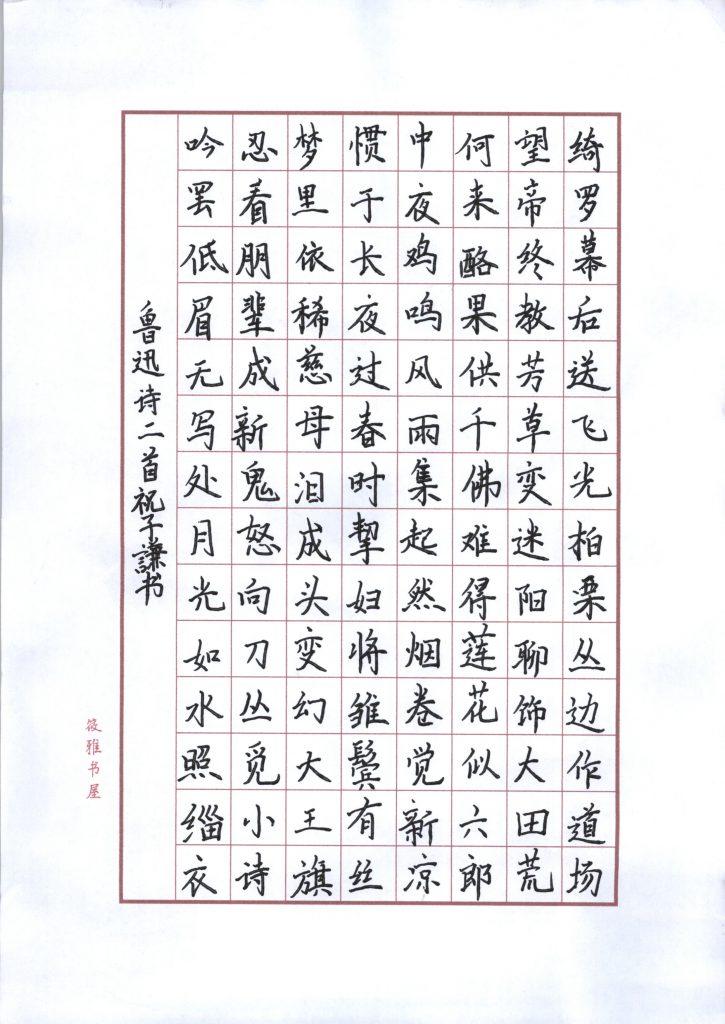 绮罗幕后送飞光柏栗丛边作道场
望帝终教芳草变迷阳聊饰大田荒
何来酪果供千佛难得莲花似六郎
中夜鸡鸣风雨集起然烟卷觉新凉
惯于长夜过春时挈妇将雏鬓有丝
梦里依稀慈母泪成头变幻大王旗
忍看朋辈成新鬼怒向刀丛觅小诗
吟罢低眉无写处月光如水照缁衣
鲁迅诗二首祝子謙书
筱雅书屋